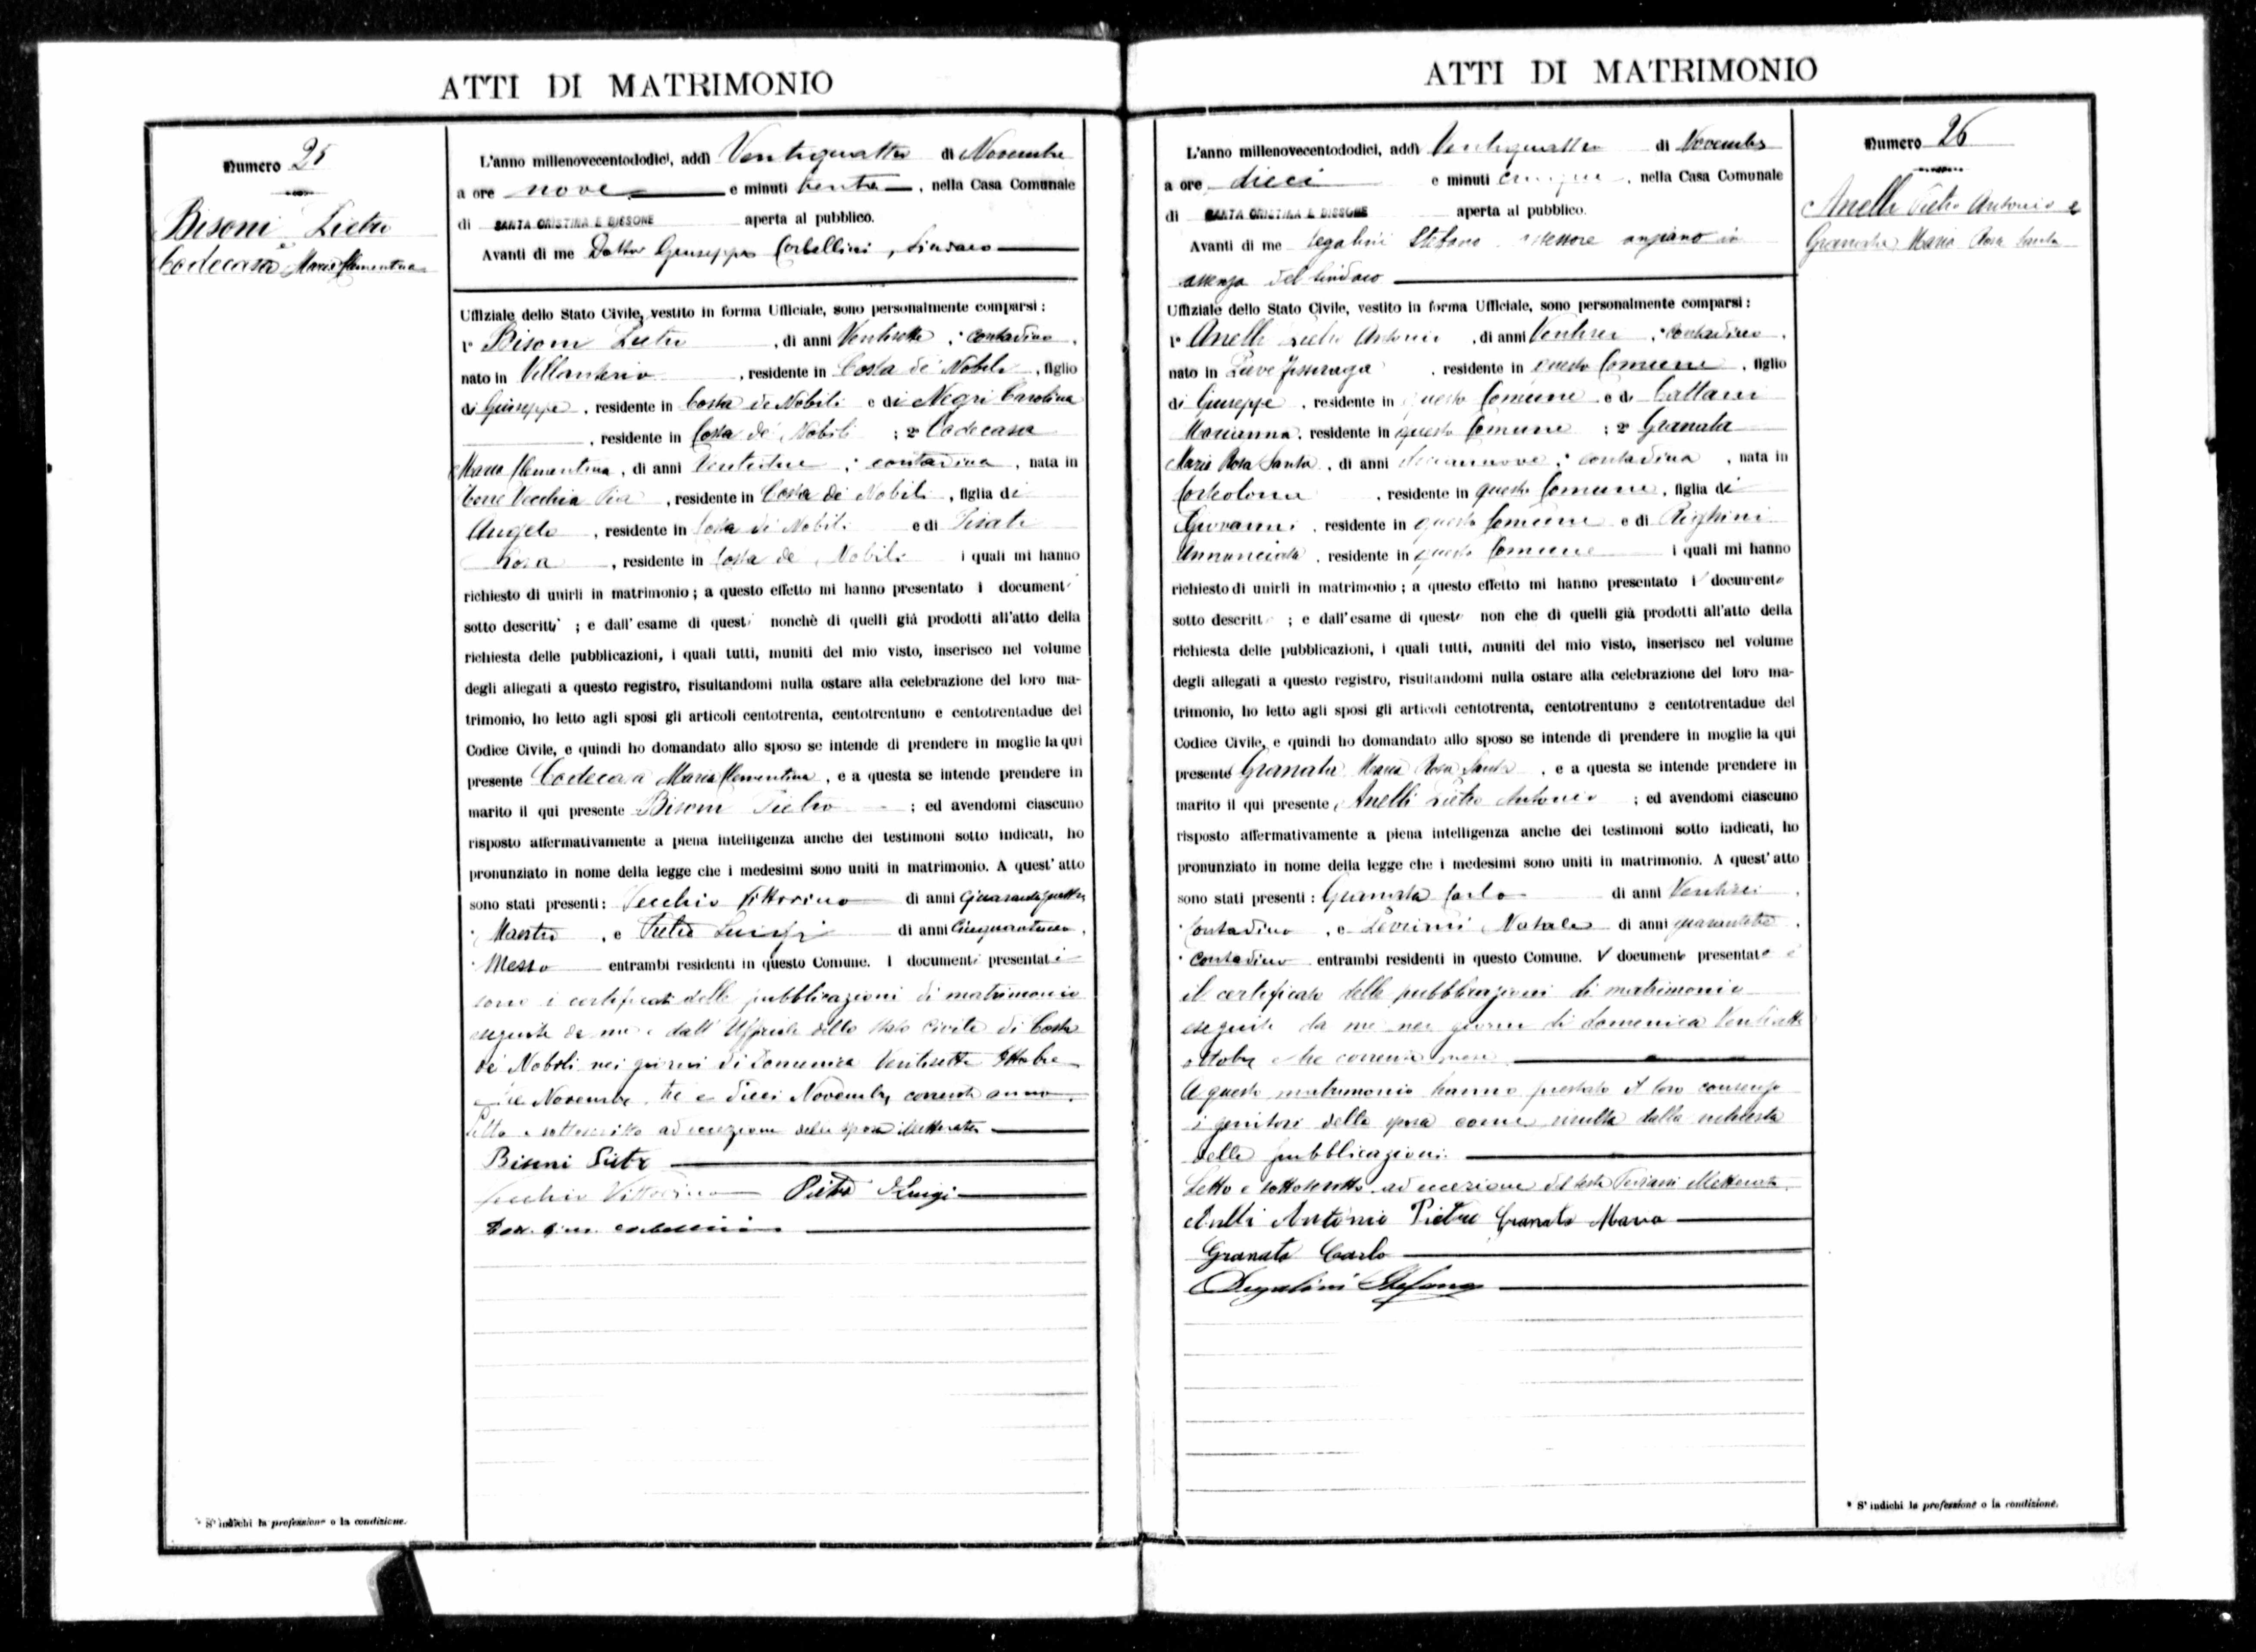 ATTI DI MATRIMONIO
Numero 25
Bisoni Pietro
e
Codecasa Maria Clementina
L'anno millenovecentododici, addì Ventiquattro di Novembre
a ore nove e minuti trenta, nella Casa Comunale
di SANTA CRISTINA E BISSONE aperta al pubblico.
Avanti di me Dottor Giuseppe Corbellini, Sindaco
Uffiziale dello Stato Civile, vestito in forma Ufficiale, sono personalmente comparsi:
1° Bisoni Pietro, di anni Ventisette, * contadino,
nato in Villanterio, residente in Costa de' Nobili, figlio
di Giuseppe, residente in Costa de Nobili e di Negri Carolina
, residente in Costa de' Nobili; 2° Codecasa
Maria Clementina, di anni * contadina, nata in
Torre Vecchia Pia, residente in Costa de' Nobili, figlia di
Angelo, residente in Costa de' Nobili e di
Rosa, residente in Costa de' Nobili i quali mi hanno
richiesto di unirli in matrimonio; a questo effetto mi hanno presentato i documenti
sotto descritti; e dall'esame di questi nonchè di quelli già prodotti all'atto della
richiesta delle pubblicazioni, i quali tutti, muniti del mio visto, inserisco nel volume
degli allegati a questo registro, risultandomi nulla ostare alla celebrazione del loro ma-
trimonio, ho letto agli sposi gli articoli centotrenta, centotrentuno e centotrentadue del
Codice Civile, e quindi ho domandato allo sposo se intende di prendere in moglie la qui
presente Codecasa Maria Clementina, e a questa se intende prendere in
marito il qui presente Bisoni Pietro; ed avendomi ciascuno
risposto affermativamente a piena intelligenza anche dei testimoni sotto indicati, ho
pronunziato in nome della legge che i medesimi sono uniti in matrimonio. A quest'atto
sono stati presenti: Vecchio Vittorino di anni quarantaquattro
* Maestro, e Pietra Luigi di anni
* Messo entrambi residenti in questo Comune. I documenti presentati
sono i certificati delle pubblicazioni di matrimonio
eseguite da me e dall'Uffiziale dello Stato Civile di Costa
de' Nobili nei giorni di domenica Ventisette Ottobre
Novembre, tre e dieci Novembre corrente anno.
Letto e sottoscritto ad eccezione della sposa illetterata
Bisoni Pietro
Vecchio Vittorino Pietra Luigi
Dott. Gius. Corbellini
* S'indichi la professione o la condizione.
ATTI DI MATRIMONIO
Numero 26
Anelli Pietro Antonio e
Granata Maria Rosa Santa
L'anno millenovecentododici, addì Ventiquattro di Novembre
a ore dieci e minuti cinque, nella Casa Comunale
di SANTA CRISTINA E BISSONE aperta al pubblico.
Avanti di me Segalini Stefano assessore anziano in
assenza del Sindaco
Uffiziale dello Stato Civile, vestito in forma Ufficiale, sono personalmente comparsi:
1° Anelli Pietro Antonio, di anni Ventisei, * contadino,
nato in Pieve Fissiraga, residente in questo Comune, figlio
di Giuseppe, residente in questo Comune e di Cattani
Marianna, residente in questo Comune; 2° Granata
Maria Rosa Santa, di anni diciannove, * contadina, nata in
Corteolona, residente in questo Comune, figlia di
Giovanni, residente in questo Comune e di Righini
Annunciata, residente in questo Comune i quali mi hanno
richiesto di unirli in matrimonio; a questo effetto mi hanno presentato i documento
sotto descritto; e dall'esame di questo non che di quelli già prodotti all'atto della
richiesta delle pubblicazioni, i quali tutti, muniti del mio visto, inserisco nel volume
degli allegati a questo registro, risultandomi nulla ostare alla celebrazione del loro ma-
trimonio, ho letto agli sposi gli articoli centotrenta, centotrentuno e centotrentadue del
Codice Civile, e quindi ho domandato allo sposo se intende di prendere in moglie la qui
presente Granata Maria Rosa Santa, e a questa se intende prendere in
marito il qui presente Anelli Pietro Antonio; ed avendomi ciascuno
risposto affermativamente a piena intelligenza anche dei testimoni sotto indicati, ho
pronunziato in nome della legge che i medesimi sono uniti in matrimonio. A quest'atto
sono stati presenti: Granata Carlo di anni Ventisei,
* contadino, e Natale di anni quarantatre,
* contadino entrambi residenti in questo Comune. I documento presentato è
il certificato delle pubblicazioni di matrimonio
eseguite da me nei giorni di domenica Ventisette
ottobre e tre corrente mese
A questo matrimonio hanno prestato il loro consenso
i genitori della sposa come risulta dalla richiesta
delle pubblicazioni.
Letto e sottoscritto ad eccezione del teste illetterato.
Anelli Antonio Pietro Granata Maria
Granata Carlo
Segalini Stefano
* S'indichi la professione o la condizione.